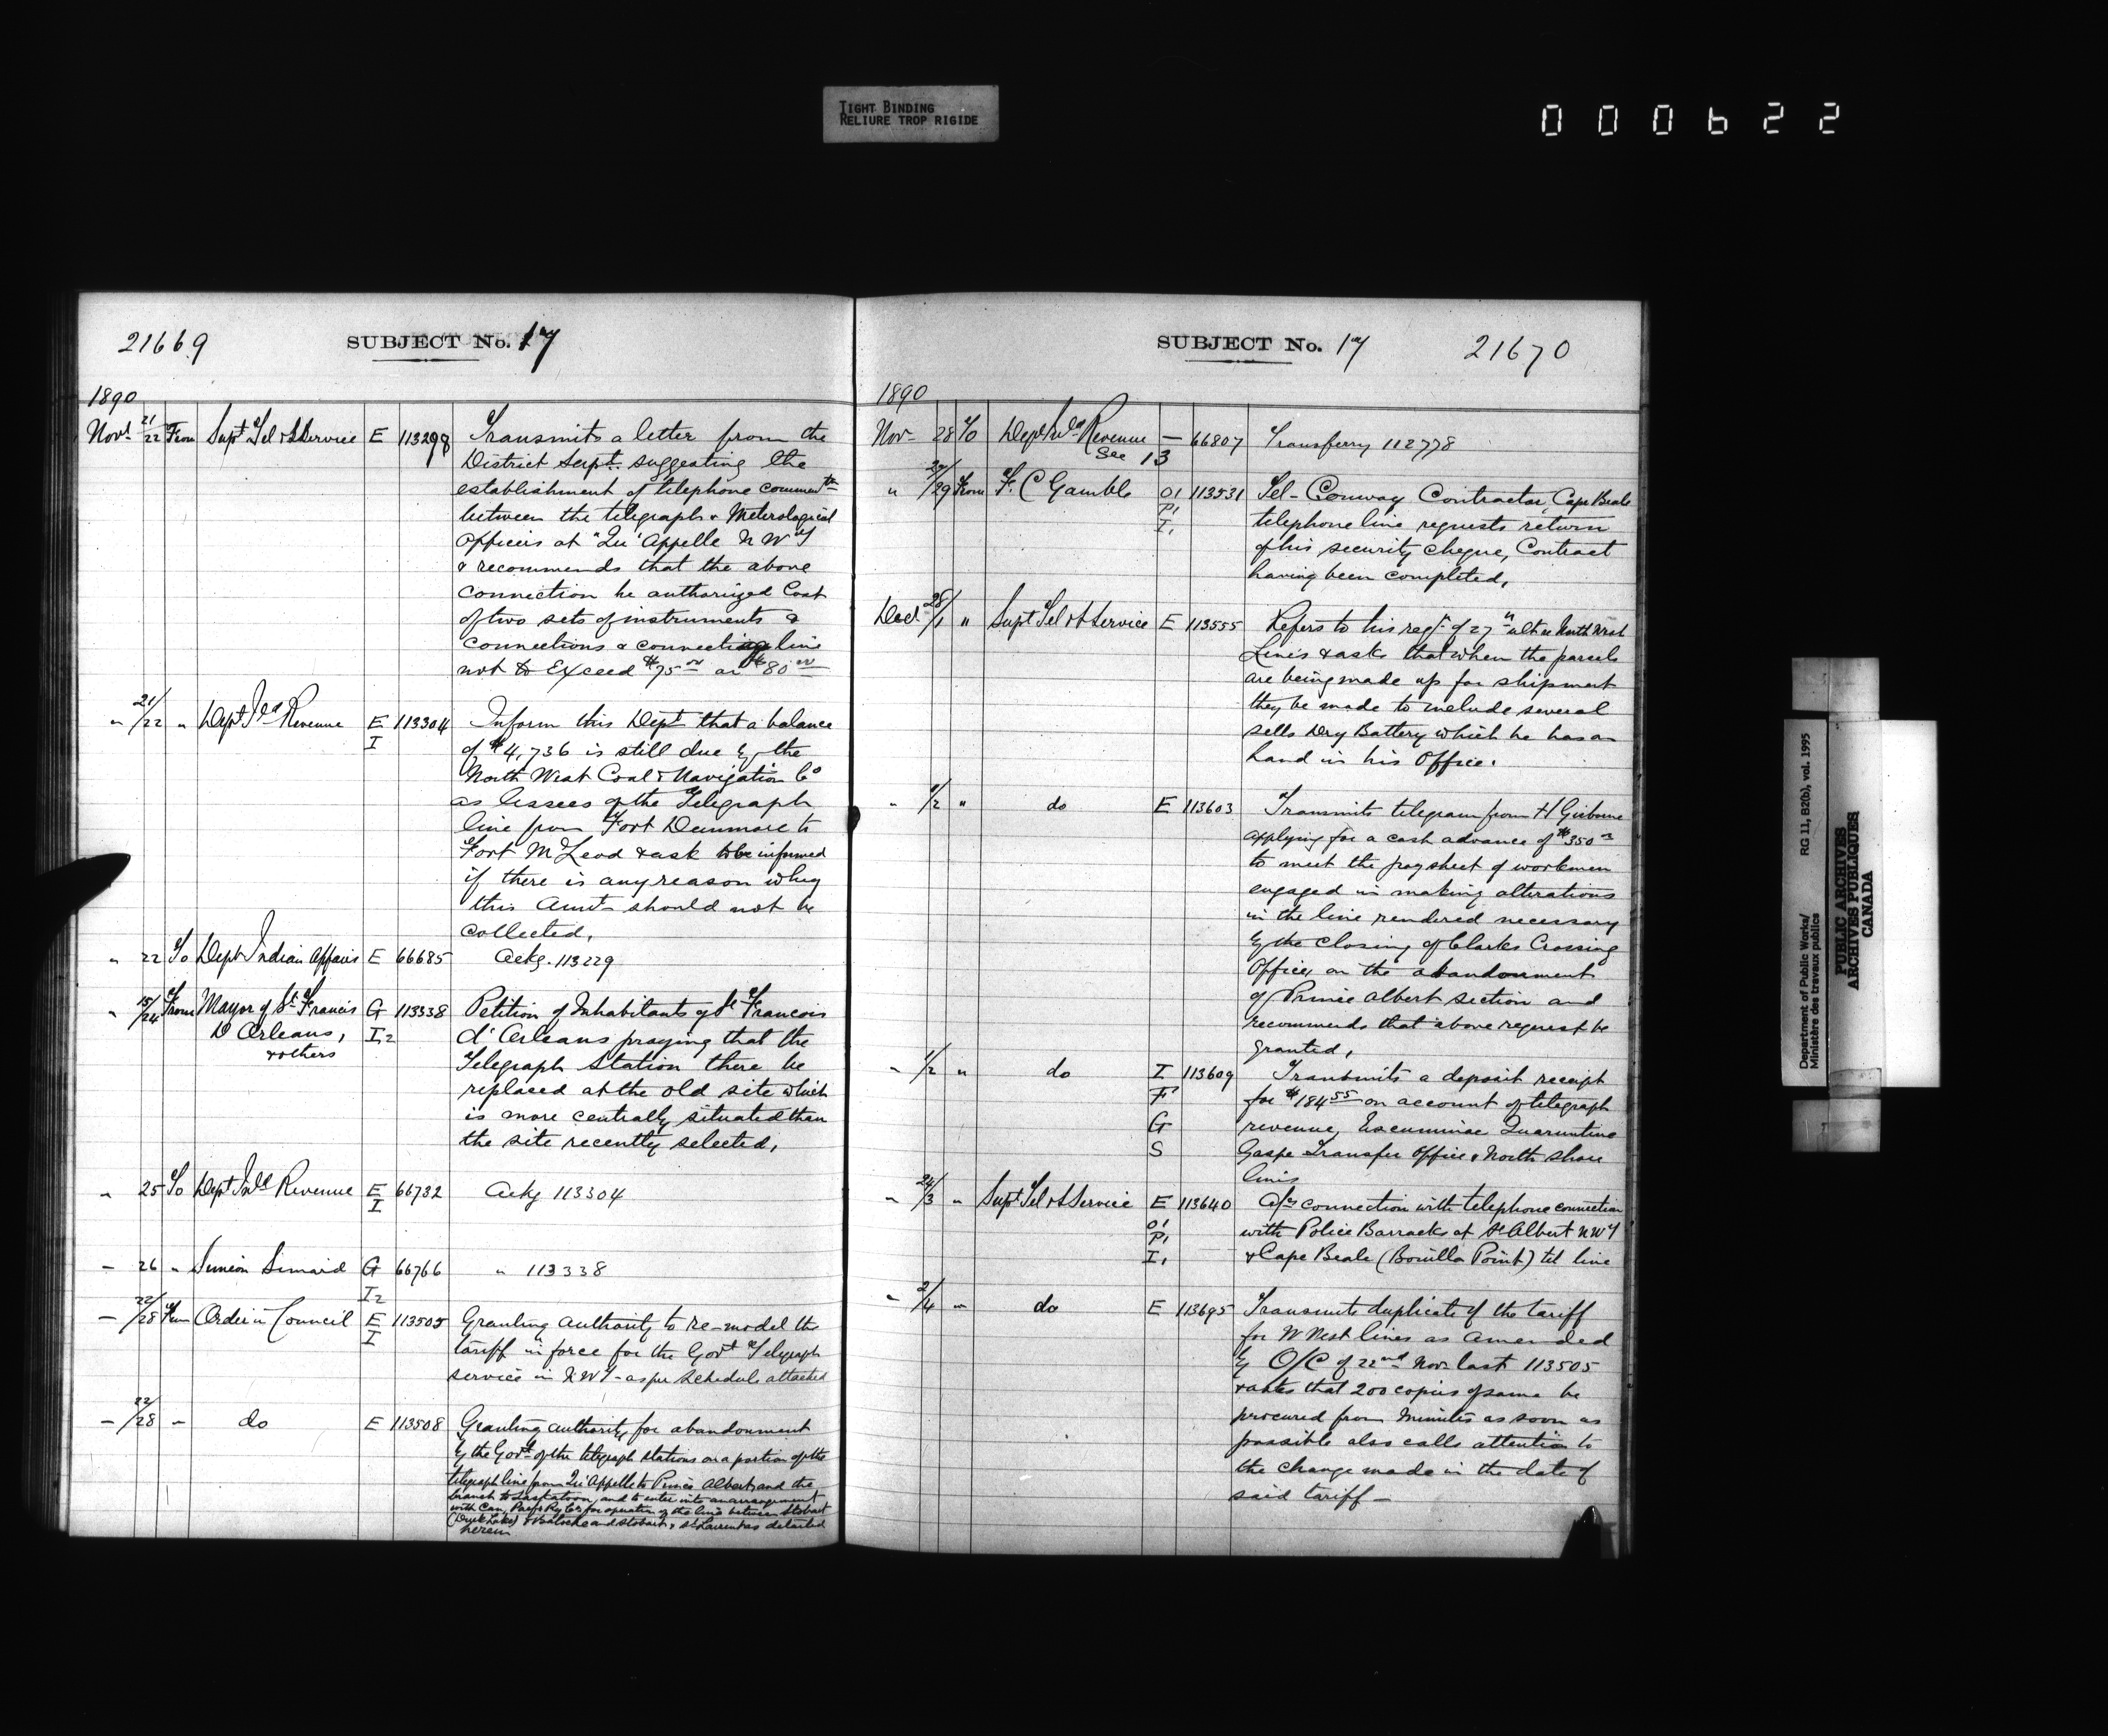 TIGHT BINDING
RELIURE TROP RIGIDE
000622
21669
SUBJECT No. 17
1890
Novr 21/22 From Supt Tel & S Service E 113298 Transmits a letter from the
District Serpt. suggesting the
establishment of telephone
between the telegraph & Meterological
Officers at "Qu'Appelle N W T
& recommends that the above
connection be authorized Cost
of two sets of instruments &
connections & connecting line
not to Exceed $75 00 or $80 00
" 21/22 " Dept Ild Revenue E 113304 Inform this Dept that a balance
I of $4,736 is still due by the
North West Coal & Navigation Co
as lessees of the Telegraph
line from Fort Dunmore to
Fort McLeod & ask to be informed
if there is any reason why
this Amt should not be
collected,
" 22 To Dept Indian Affairs E 66685 Ackg. 113229
" 15/24 From Mayor of St Francis G 113338 Petition of Inhabitants of St Francois
D Orleans, I2 d'Orleans praying that the
& others Telegraph Station there be
replaced at the old site which
is more centrally situated than
the site recently selected,
" 25 To Dept Inld Revenue E 66732 Ackg 113304
I
– 26 " Simeon Simard G 66766 " 113338
I2
– 22/28 From Order in Council E 113505 Granting authority to re-model the
I tariff in force for the Govt Telegraph
service in N W T - as per Schedule attached
– 22/28 " do E 113508 Granting authority for abandonment
by the Govt of the telegraph stations on a portion of the
telegraph line from Qu'Appelle to Prince Albert and the
branch to Saskatoon, and to enter into an arrangement
with Can. Pacfc Ry Co. for operation of the line between Stobart
(Duck Lake) & Batoche and Stobart & St Laurent as detailed
herein
SUBJECT No. 17
21670
1890
Nov 28 To Dept Inld Revenue — 66807 Transferry 112778
See 13
" 20/29 From F. C Gamble O1 113531 Tel - Conway Contractor, Cape Beale
P1 telephone line requests return
I1 of his security cheque, Contract
having been completed,
Decr 28/1 " Supt Tel & S Service E 113555 Refers to his reqn of 27th ult re North West
Lines & asks that when the parcels
are being made up for shipment
they be made to include several
sells Dry Battery which he has on
hand in his Office.
" 1/2 " do E 113603 Transmits telegram from H Gisborne
applying for a cash advance of $350
to meet the paysheet of workmen
engaged in making alterations
in the line rendered necessary
by the closing of Clarks Crossing
Office, on the abandonment
of Prince Albert section and
recommends that above request be
granted,
– 1/2 " do I 113609 Transmits a deposit receipt
F for $184 55 on account of telegraph
G revenue, Escuminac Quaruntine
S Gaspe Transfer Office & North Shore
lines
– 24/3 " Supt Tel & S Service E 113640 connection with telephone connection
O1 with Police Barracks at St Albert N W T
P1
I1 & Cape Beale (Bonilla Point) tel line
" 2/4 " do E 113695 Transmits duplicate of the tariff
for N West lines as Amended
by O/C of 22nd Nov last 113505
& asks that 200 copies of same be
procured from minutes as soon as
possible also calls attention to
the change made in the date of
said tariff —
Department of Public Works/
Ministère des travaux publics
RG 11, B2(b), vol. 1995
PUBLIC ARCHIVES
ARCHIVES PUBLIQUES
CANADA